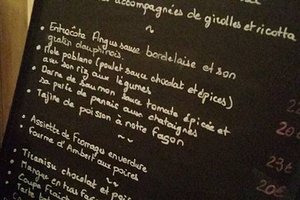 accompagnées de girolles et ricotta
~
• Entrecôte Angus sauce bordelaise et son
gratin dauphinois.
• Mole poblano (poulet sauce chocolat et épices)
aux son riz aux légumes
• Darne de saumon sauce tomate épicée et
sa purée de panais aux chataignes
• Tajine de poisson à notre façon
~~
• Assiette de Fromages en verdure
• Fourme d'Ambert aux poires
~
• Tiramisu chocolat et
• Mangue en
• Coupe
• Tarte
2
20
23€
20€